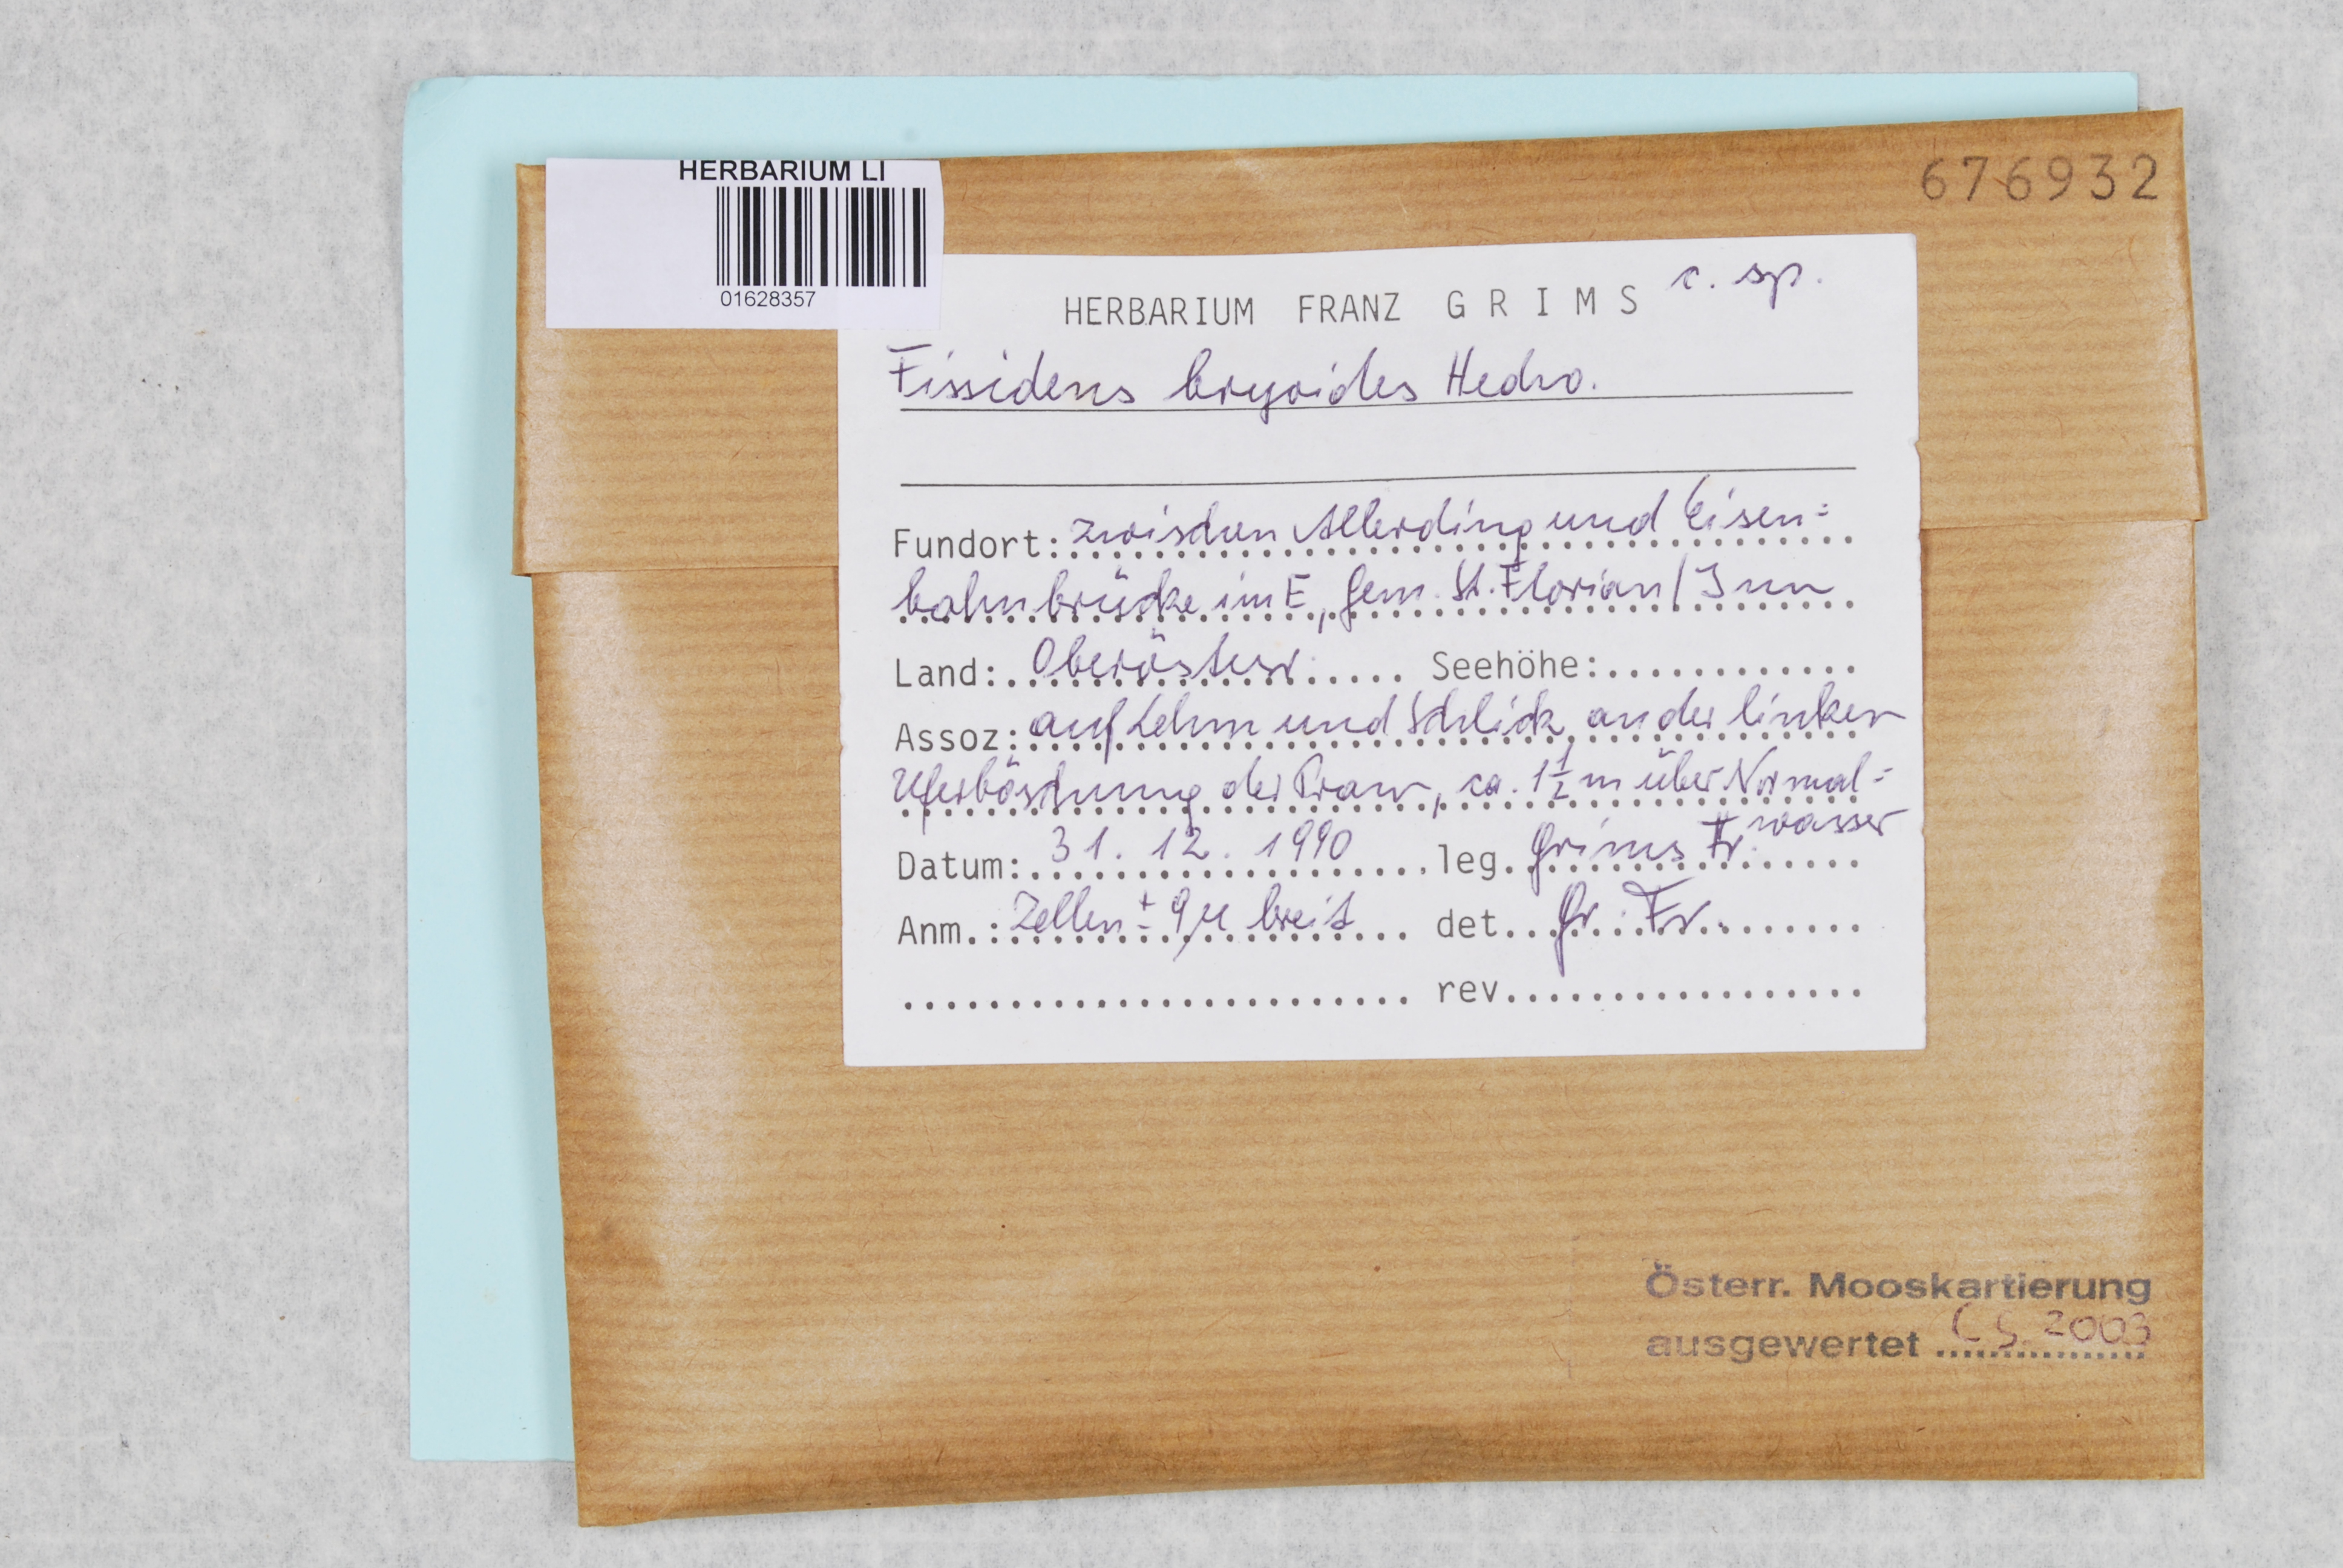 HERBARIUM LI
01628357
676932
HERBARIUM FRANZ GRIMS c. sp.
Fissidens bryoides Hedw.
Fundort: zwischen Allerding und Eisen=
bahnbrücke im E, Gem. St. Florian/Inn
Land: Oberösterr. Seehöhe:
Assoz: auf Lehm und Schlick an der linken
Uferböschung der Pram, ca. 1½ m über Normal=
wasser
Datum: 31. 12. 1990 leg. Grims Fr.
Anm.: Zellen ± 9 µ breit det. Gr. Fr.
rev.
Österr. Mooskartierung
ausgewertet CS. 2003